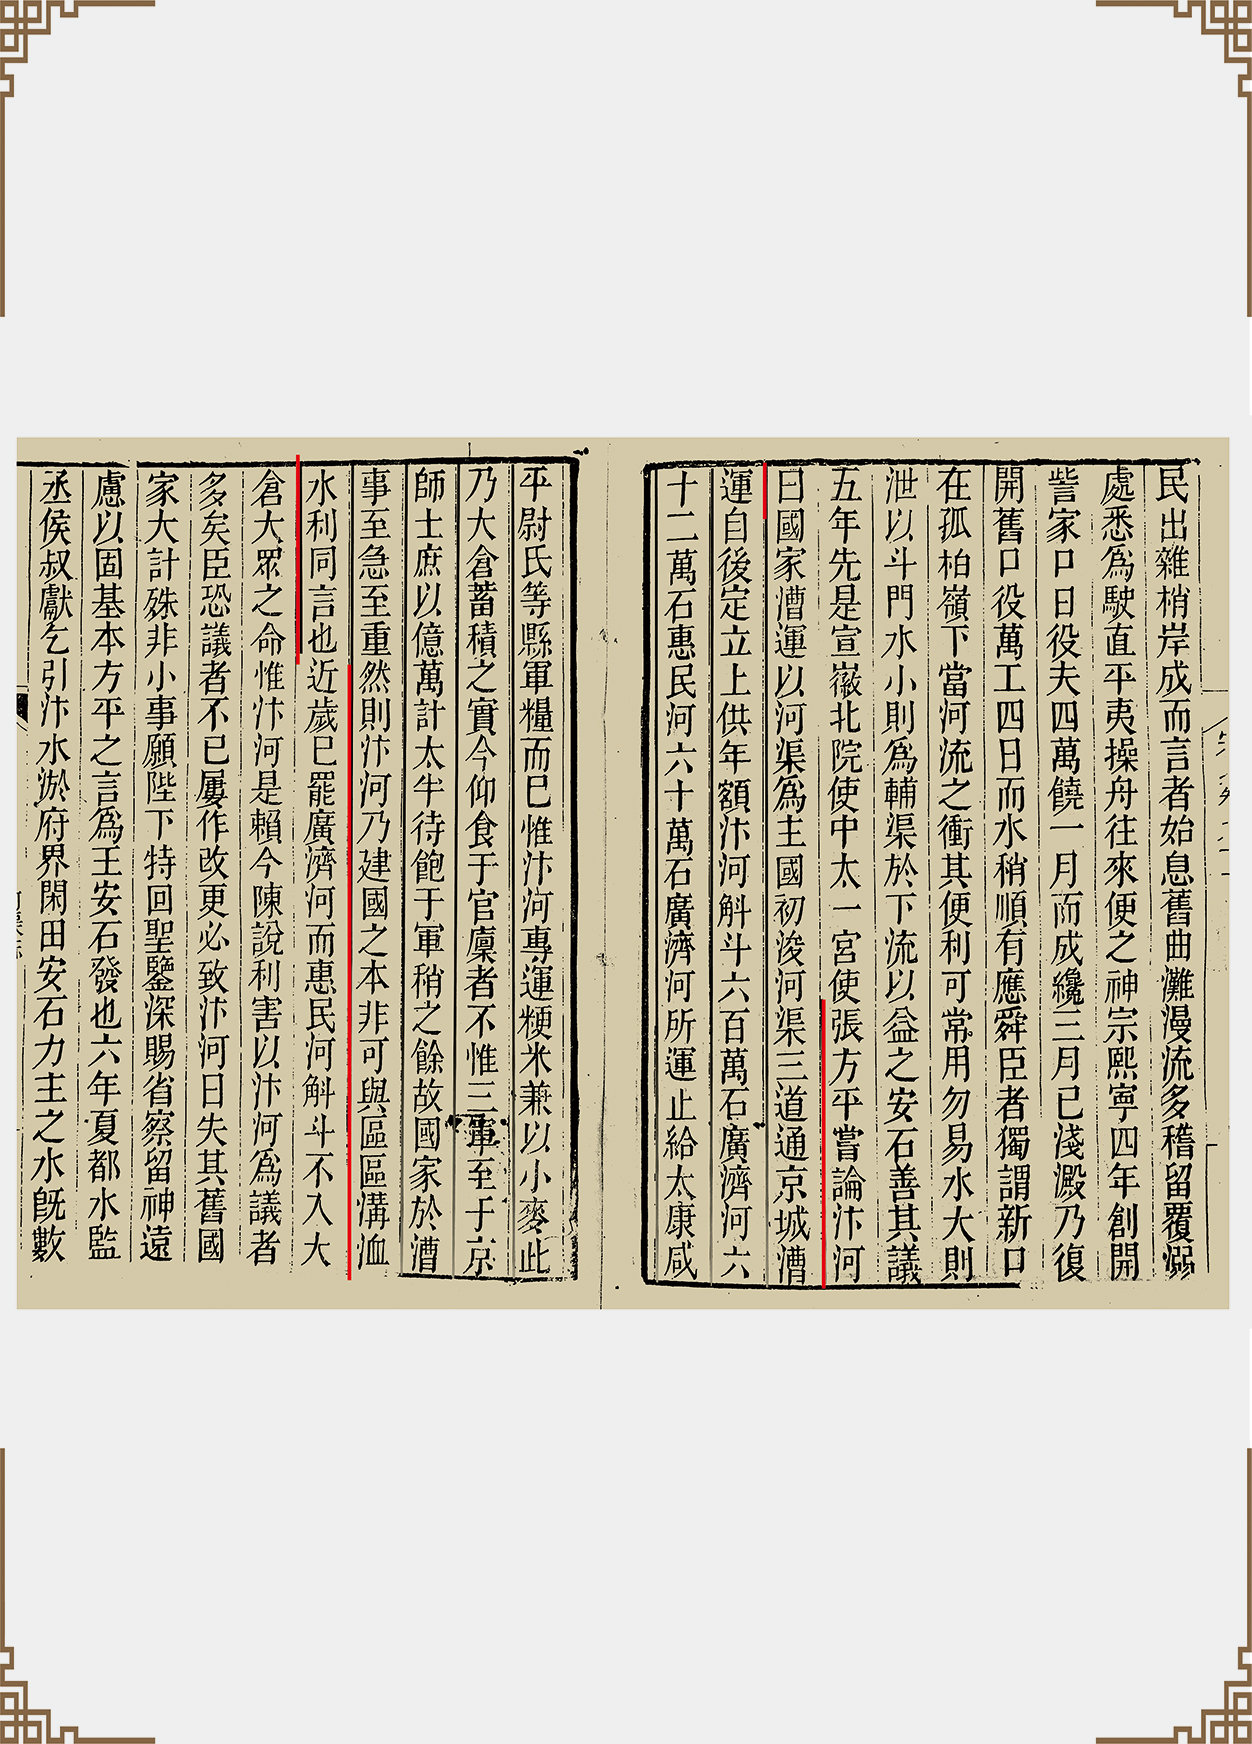 民出雜梢岸成而言者始息舊曲灘漫流多稽留覆溺
處悉為駛直平夷操舟往來便之神宗熙寧四年創開
訾家口日役夫四萬饒一月而成纔三月已淺澱乃復
開舊口役萬工四日而水稍順有應舜臣者獨謂新口
在孤柏嶺下當河流之衝其便利可常用勿易水大則
泄以斗門水小則為輔渠於下流以益之安石善其議
五年先是宣徽北院使中太一宮使張方平嘗論汴河
曰國家漕運以河渠為主國初浚河渠三道通京城漕
運自後定立上供年額汴河斛斗六百萬石廣濟河六
十二萬石惠民河六十萬石廣濟河所運止給太康咸
平尉氏等縣軍糧而已惟汴河專運粳米兼以小麥此
乃大倉蓄積之實今仰食于官廩者不惟三軍至于京
師士庶以億萬計太半待飽于軍稍之餘故國家於漕
事至急至重然則汴河乃建國之本非可與區區溝洫
水利同言也近歲已罷廣濟河而惠民河斛斗不入大
倉大眾之命惟汴河是賴今陳說利害以汴河為議者
多矣臣恐議者不已屢作改更必致汴河日失其舊國
家大計殊非小事願陛下特回聖鑒深賜省察留神遠
慮以固基本方平之言為王安石發也六年夏都水監
丞侯叔獻乞引汴水淤府界閑田安石力主之水既數